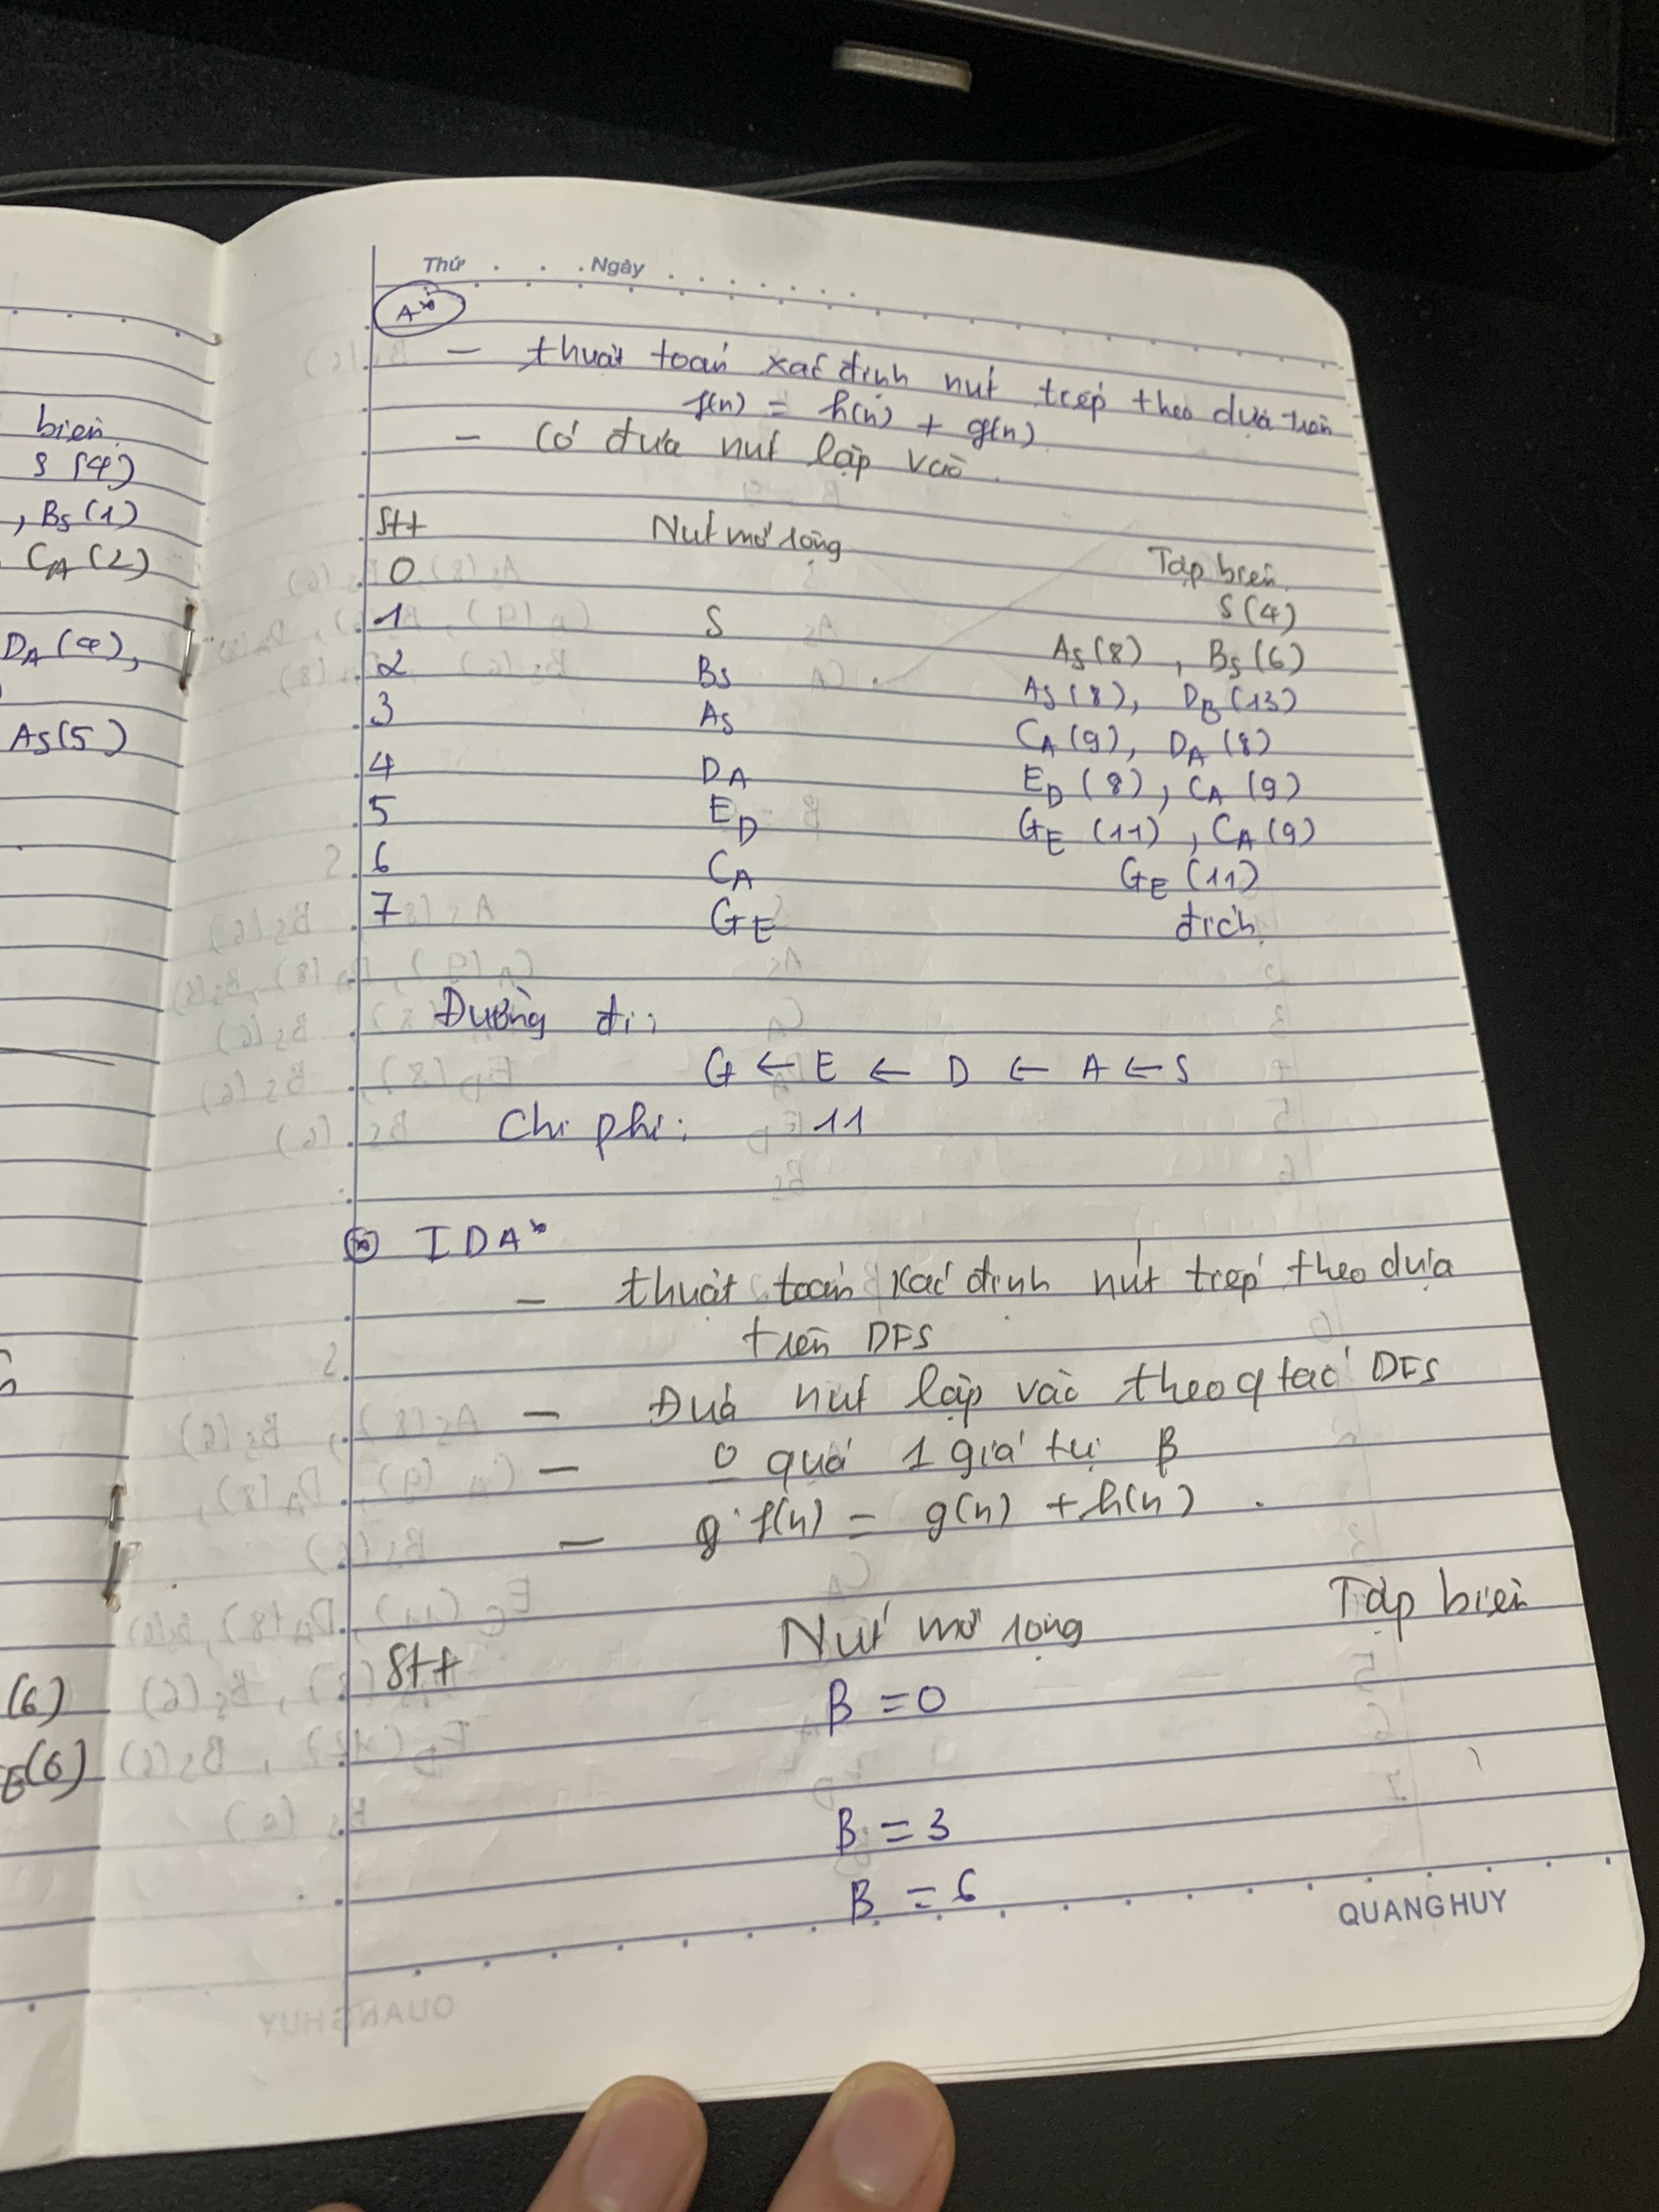 Thứ . . . Ngày . . . . . . .
A*
biên
S (4)
, BS (1)
CA (2)
DA (4),
AS (5)
(6)
E(6)
- thuật toán xác định nút tiếp theo dựa trên
f(n) = h(n) + g(n)
- Có đưa nút lặp vào.
Stt Nút mở rộng Tập biên
0 S (4)
1 S AS (8) , BS (6)
2 BS AS (8), DB (13)
3 AS CA (9), DA (8)
4 DA ED (8), CA (9)
5 ED GE (11) , CA (9)
6 CA GE (11)
7 GE đích
Đường đi:
G ← E ← D ← A ← S
Chi phí: 11
* IDA*
- thuật toán xác định nút tiếp theo dựa
trên DFS
- Đưa nút lặp vào theo qtắc DFS
- 0 quá 1 giá trị β
- f(n) = g(n) + h(n) .
Stt Nút mở rộng Tập biên
β = 0
β = 3
β = 6
QUANG HUY